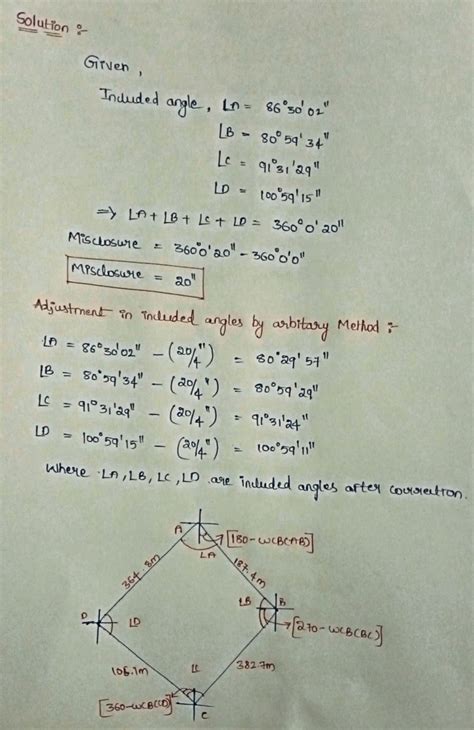 Solution :-
Given,
Included angle, LA = 86°30'02"
LB = 80°59'34"
LC = 91°31'29"
LD = 100°59'15"
=> LA + LB + LC + LD = 360°0'20"
Misclosure = 360°0'20" - 360°0'0"
Misclosure = 20"
Adjustment in included angles by arbitary Method :-
LA = 86°30'02" - (20/4") = 80°29'57"
LB = 80°59'34" - (20/4") = 80°59'29"
LC = 91°31'29" - (20/4") = 91°31'24"
LD = 100°59'15" - (20/4") = 100°59'11"
Where LA, LB, LC, LD are included angles after correction.
A
[180-WCB(AB)]
LA
364.8m
187.4m
LB
B
D
LD
[270-WCB(BC)]
106.1m
LC
382.7m
[360-WCB(CD)]
C